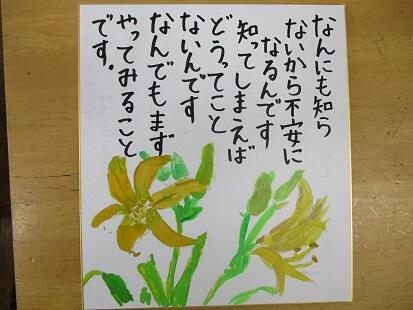 なんにも知ら
ないから不安に
なるんです
知ってしまえば
どうってこと
ないんです
なんでもまず
やってみること
です。